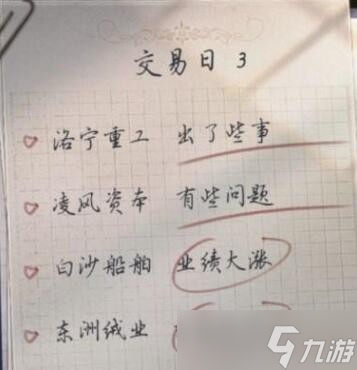 交易日 3
洛宁重工 出了些事
凌风资本 有些问题
白沙船舶 业绩大涨
东洲绒业
九游